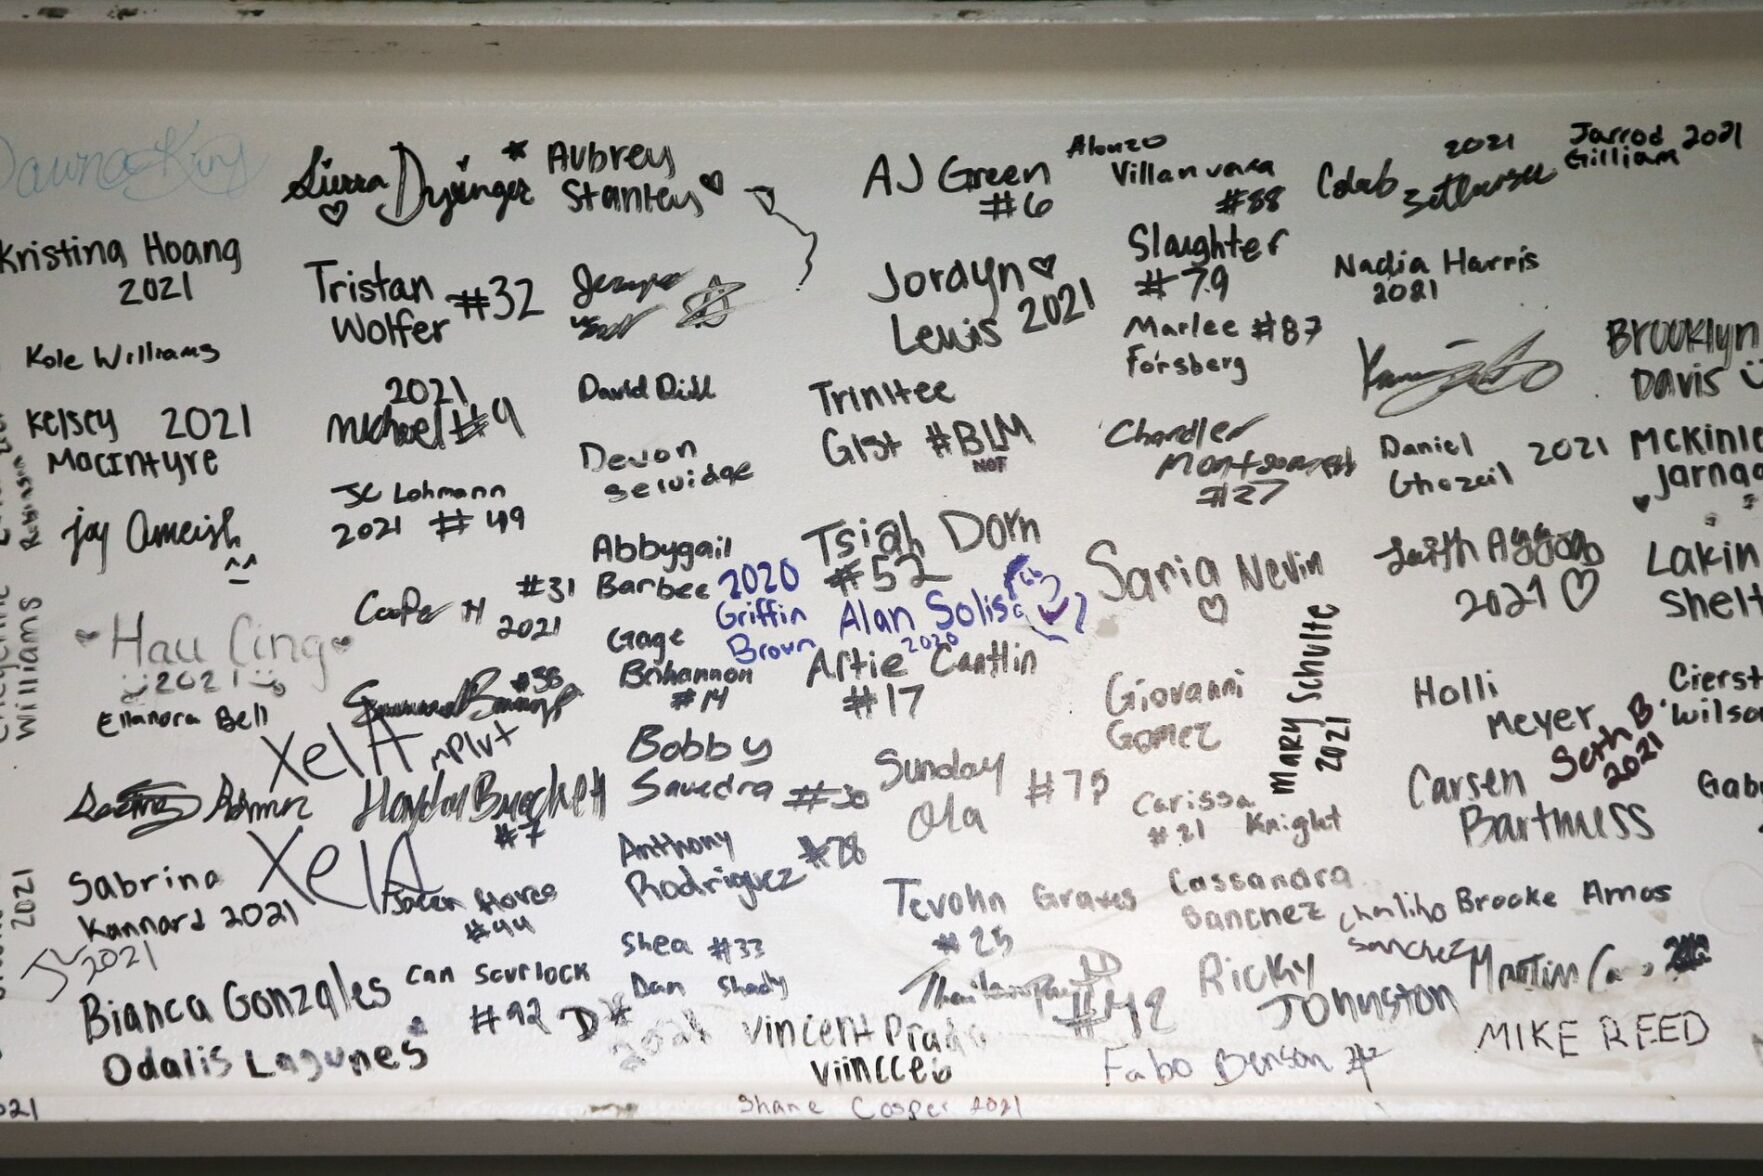 Kristina Hoang
2021
Kole Williams
Kelsey 2021
MacIntyre
Jay Ameish
^^
Williams
Hau Cing
2021
Ellanora Bell
Sabrina
Kannard 2021
2021
JL 2021
Bianca Gonzales
Odalis Lagunes
Sierra Dysinger
Tristan
Wolfer #32
2021
Michael #9
JC Lohmann
2021 #49
Cooper H #31
2021
#38
XelA
MPLVT
#7
XelA
Flores
#44
Can Scurlock
#92
Aubrey
Stanley
David Dill
Devon
Selvidge
Abbygail
Barbee 2020
Griffin
Brown
Gage
Bohannon
#14
Bobby
Saucdra #30
Anthony
Rodriguez #78
Shea #33
Dan Shady
2021
Vincent Prado
Viincceo
Shane Cosper 2021
AJ Green
#6
Jordyn
Lewis 2021
Trinitee
Gist #BLM
NOT
Tsiah Dorn
#52
Alan Solis
2020
Artie Cantlin
#17
Sunday
Ola #75
Tevohn Graves
#25
Alonzo
Villanvava
#88
Slaughter
#79
Marlee #87
Forsberg
Chandler
#27
Saria Nevin
Giovanni
Gomez
Carissa
#21 Knight
Cassandra
Sanchez
Sanchez
Ricky
Johnston
Fabo Benson #2
Mary Schulte
2021
2021
Caleb
Nadia Harris
2021
Daniel
Ghazail 2021
Laith Aggad
2021
Holli
Meyer
Seth B.
2021
Carsen
Bartmess
Brooke Amos
Martin
MIKE REED
Jarrod 2021
Gilliam
Brooklyn
Davis
McKinle
Jarnag
Lakin
Shelt
Cierst
Wilso
Gab